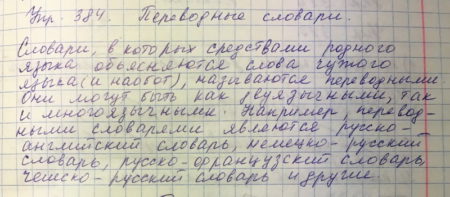 Упр. 384. Переводные словари.
Словари, в которых средствами родного
языка объясняются слова чужого
языка (и наобот), называются переводными
Они могут быть как двуязычными, так
и многоязычными. Например, перевод-
ными словарями являются русско-
английский словарь, немецко-русский
словарь, русско-французский словарь,
чешско-русский словарь и другие.